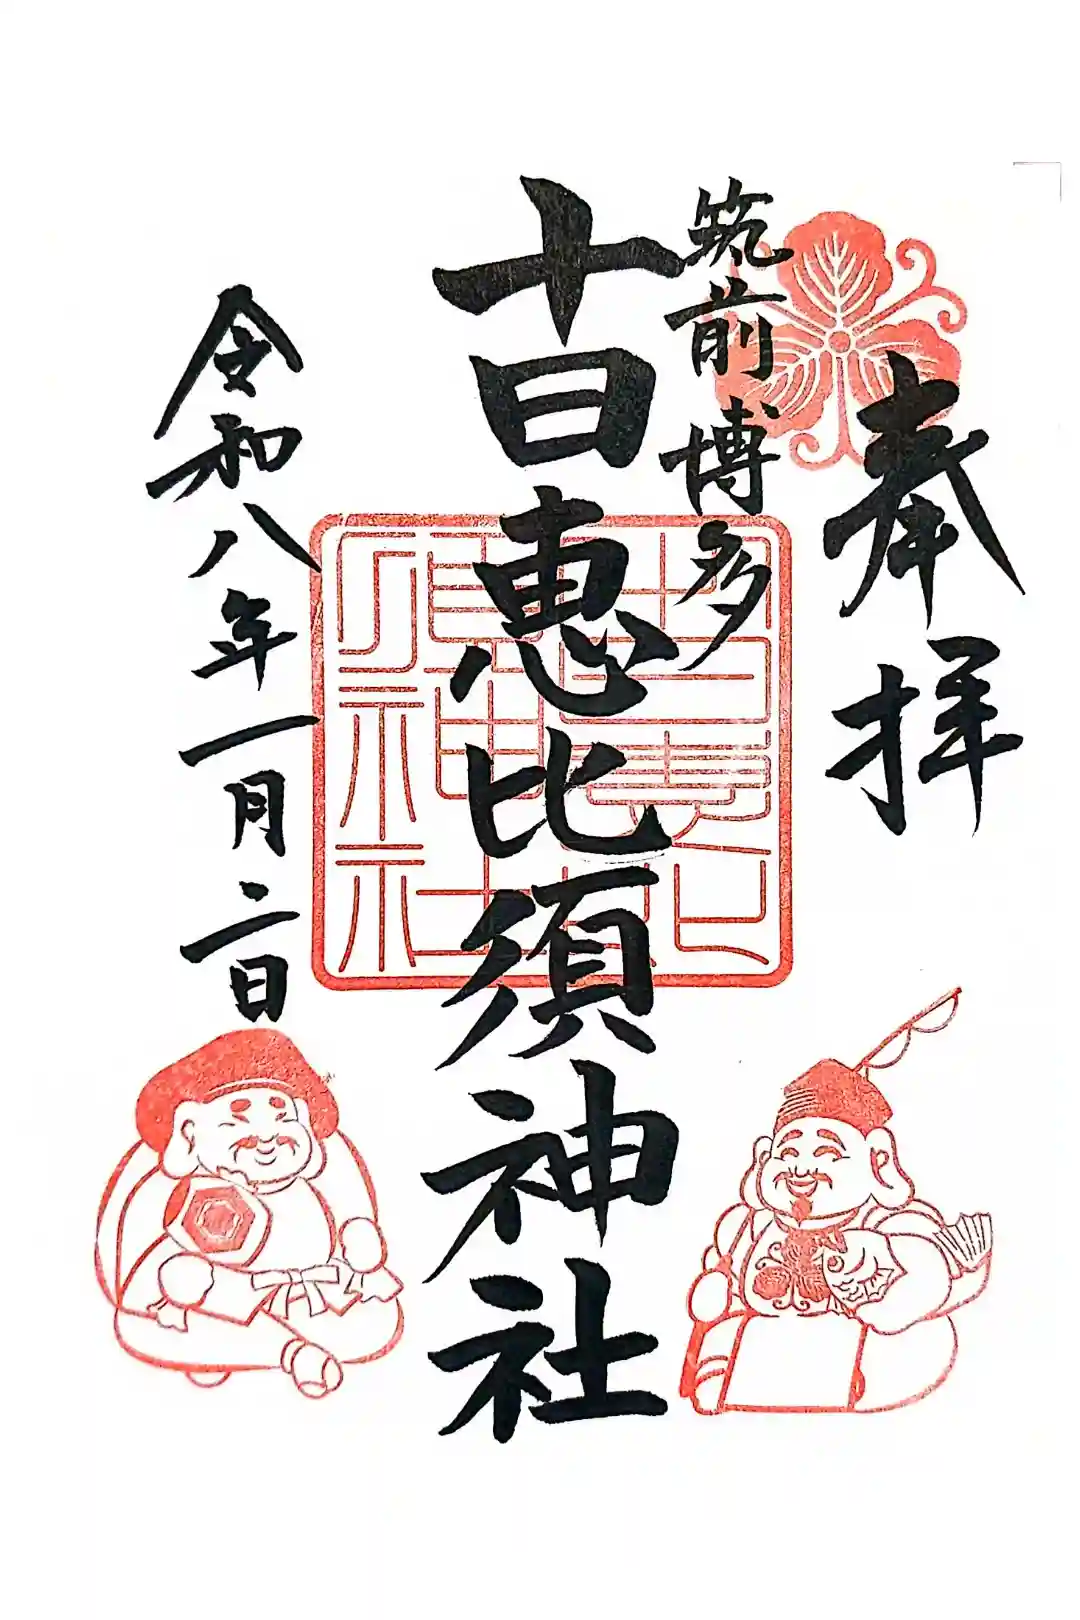 奉拝
筑前博多
十日恵比須神社
令和八年一月二日
十日恵比
須神社